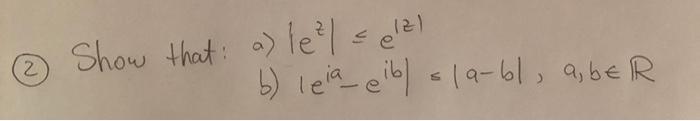 ② Show that: a) |e^z| ≤ e^|z|
b) |e^ia - e^ib| ≤ |a-b|, a,b ∈ ℝ